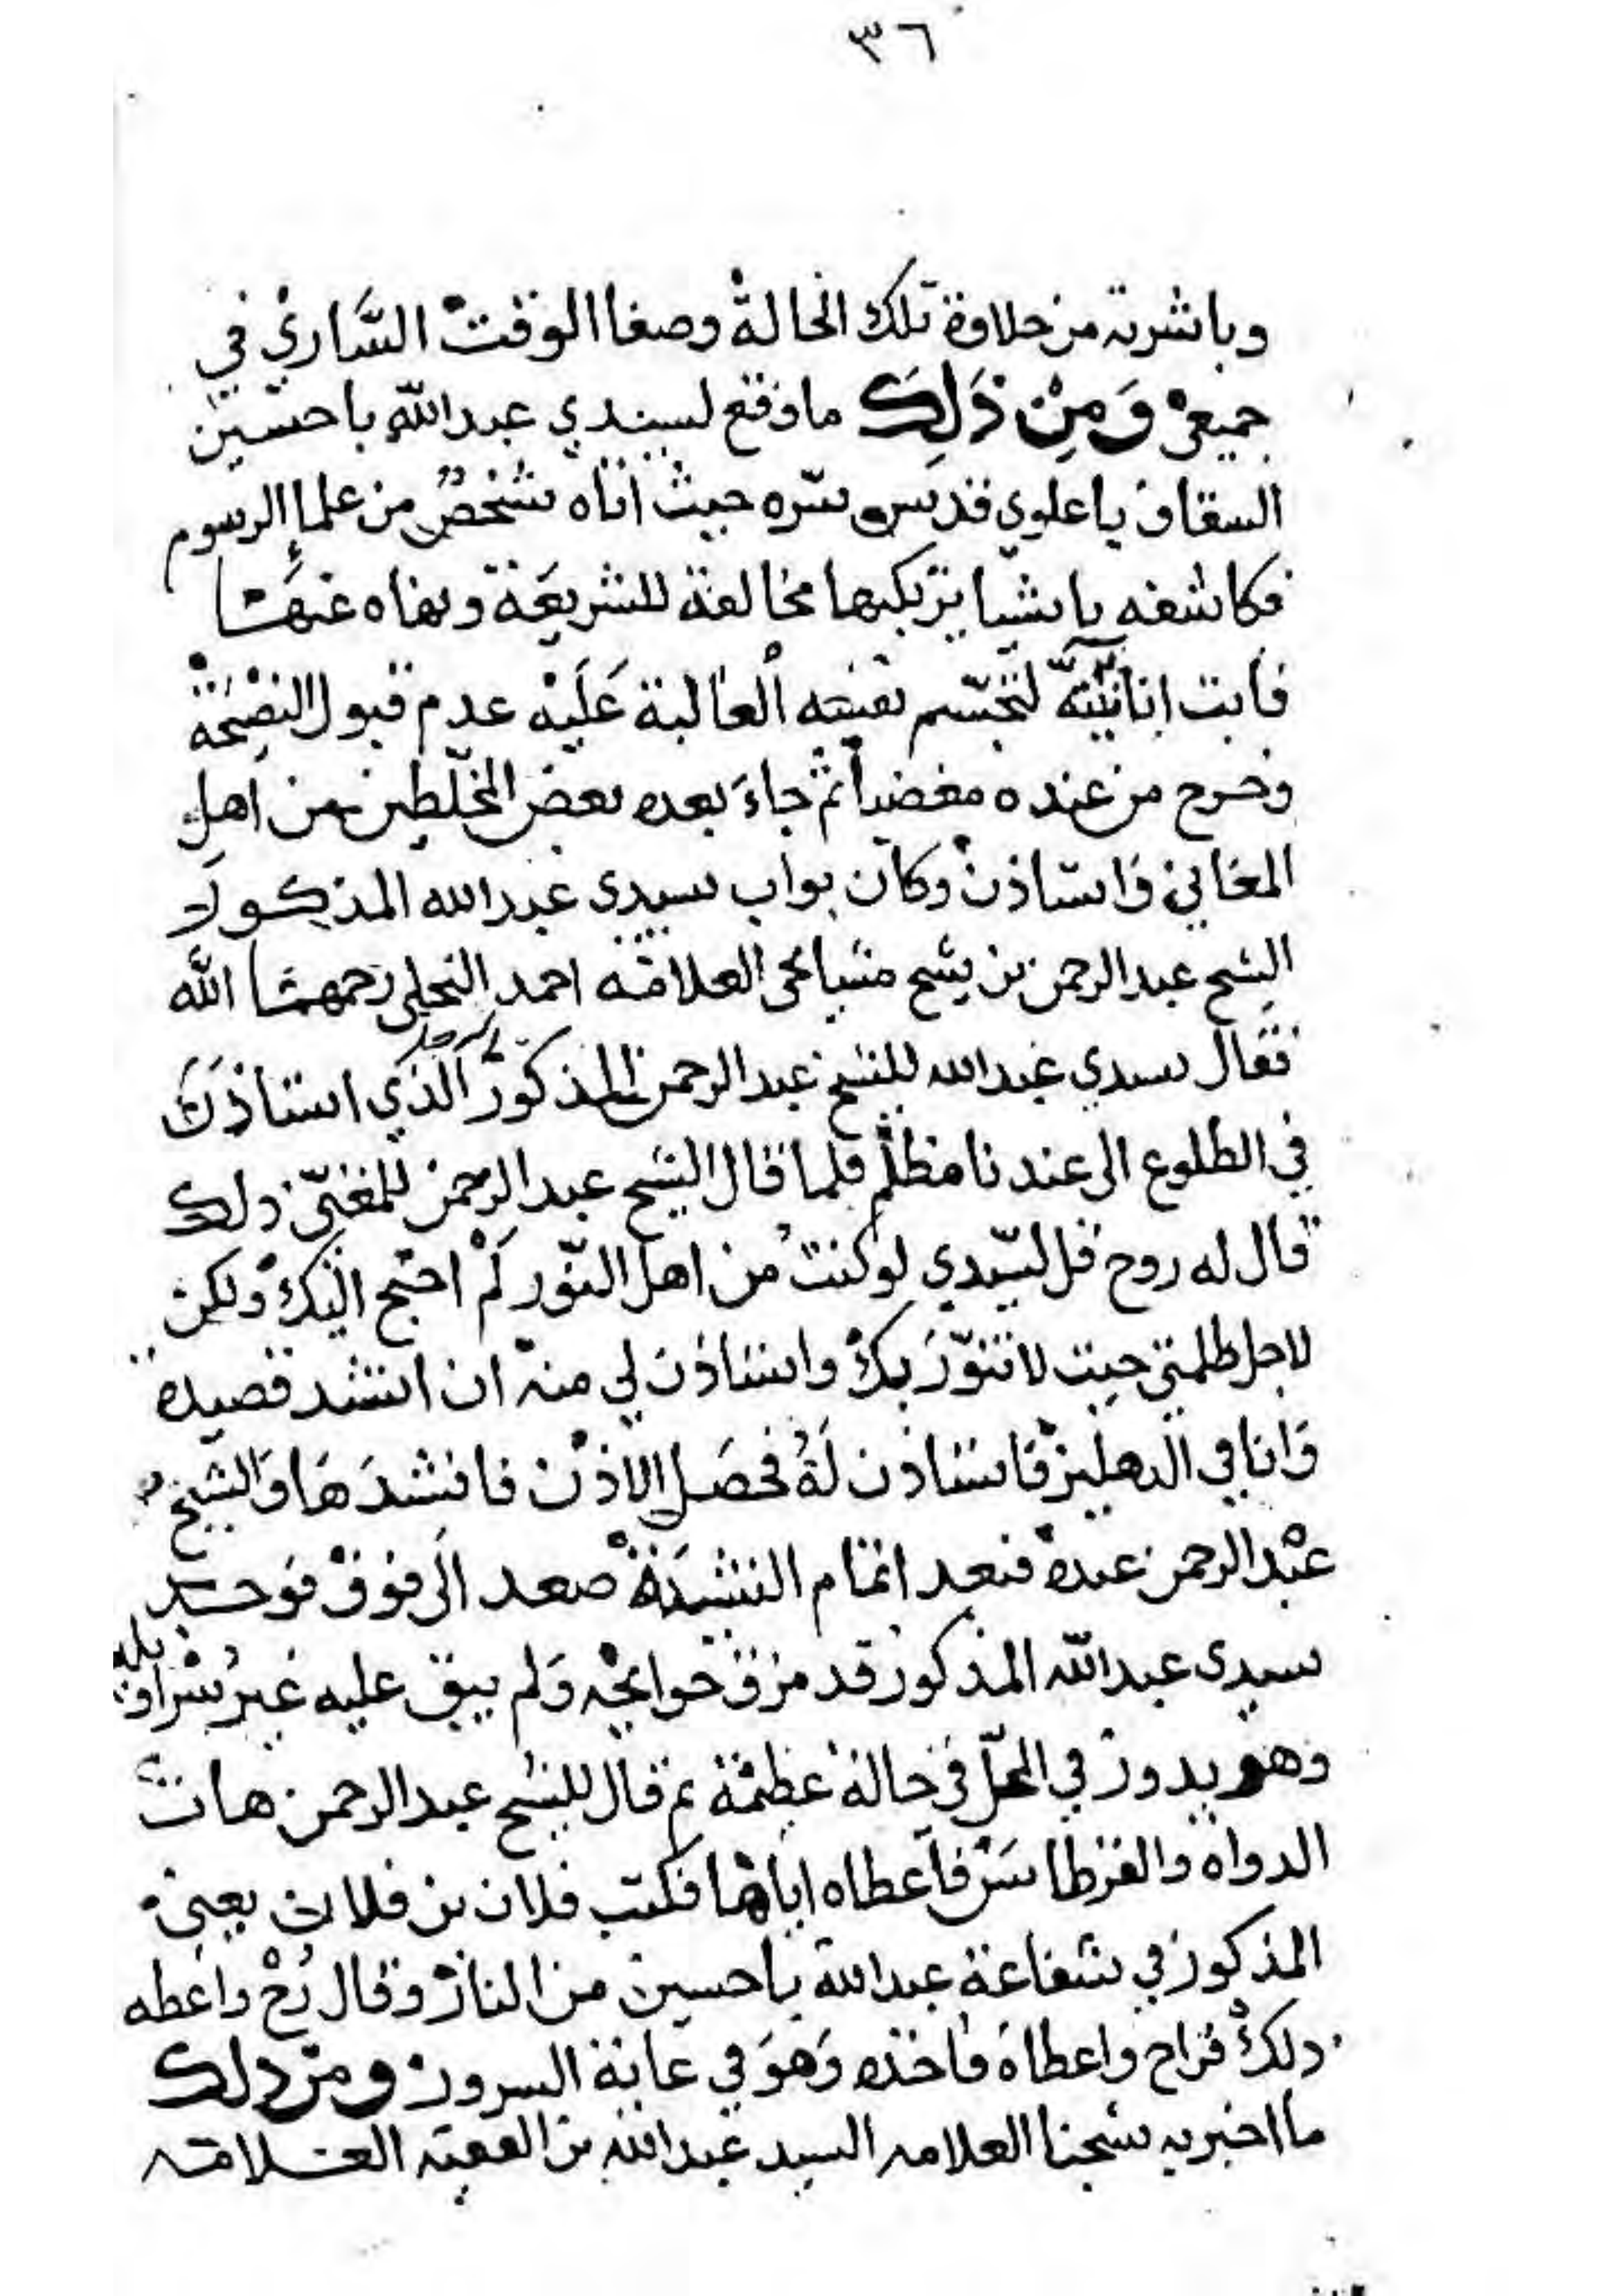 ٣٦
وباشرته من حلاوة تلك الحالة وصفا الوقت الساري في
جميعي وَمِنْ ذَلِكَ ماوقع لسيدي عبدالله باحسين
السقاف باعلوي قدس سره حيث اتاه شخصٌ من علماء الرسوم
فكاشفه باشيا يرتكبها مخالفة للشريعة ونهاه عنها
فابت انانيّته لتجسّم نفسه الغالبة عَلَيْه عدم قبول النصيحة
وخرج من عنده مغضباً ثم جاءَ بعده بعض المخلّطين من اهل
المغاني فاستاذن وكان بواب سيدي عبدالله المذكور
الشيخ عبدالرحمن بن شيخ مشايخي العلامة احمد النخلي رحمهما الله
فقال سيدي عبدالله للشيخ عبدالرحمن المذكور الذي استاذنك
في الطلوع الى عندنا مظلم فلما قال الشيخ عبدالرحمن للمغنّي ذلك
قال له روح قل لسيّدي لوكنت من اهل النّور لَمْ احتج اليك ولكن
لاجل ظلمتي جيت لاتنوّر بك واستاذن لي منه ان انشد قصيدة
وَانا في الدهليز فاستاذن لَهُ فحصَل الاذن فانشدَهَا وَالشيخ
عبْدالرحمن عنده فبعد اتمام النشيدة صعد الى فوق فوجد
سيدي عبدالله المذكور قد مزق حوايجه وَلم يبق عليه غير سراويله
وهو يدور في المحلّ في حالة عظيمة ثم قال للشيخ عبدالرحمن هات
الدواة والقرطاسَ فاعطاه اياها فكتب فلان بن فلان يعني
المذكور في شفاعة عبدالله باحسين من النار وقال رُحْ واعطه
ذلك فراح واعطاه فاخذه وَهوَ في غاية السرور ومن ذلك
ما اخبر به شيخنا العلامه السيد عبدالله بن الفقيه العلامه